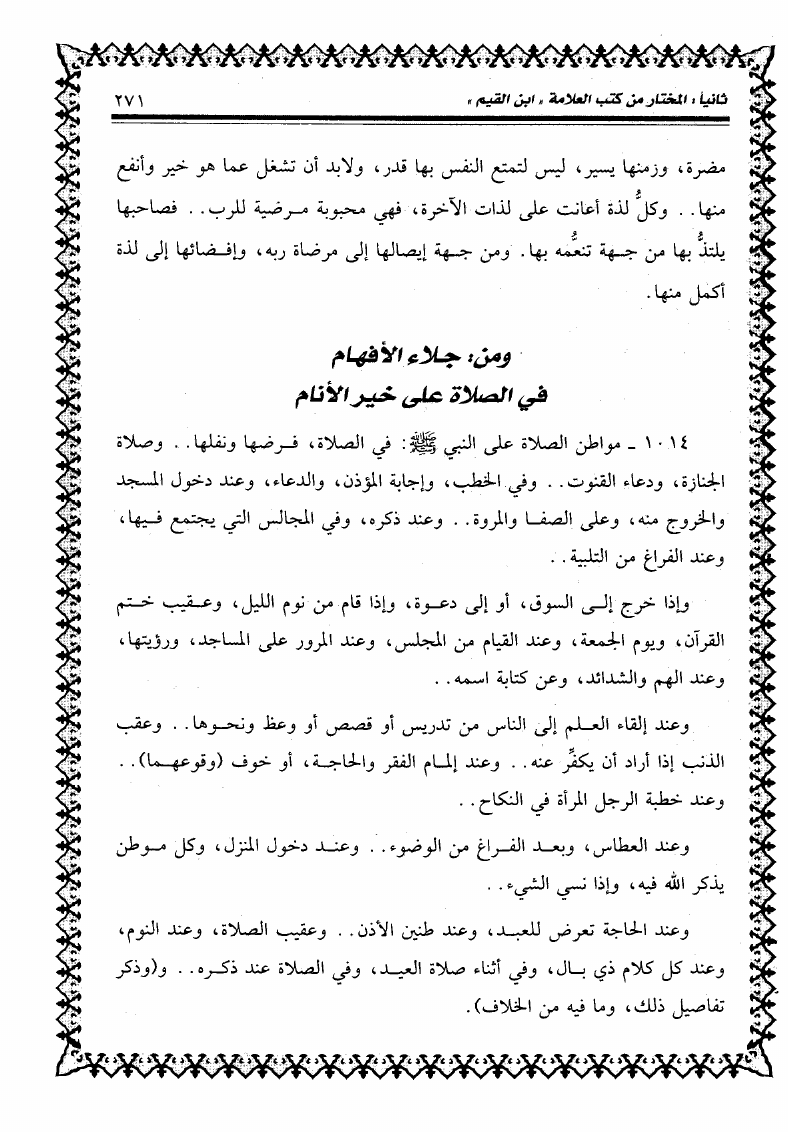 ثانياً : المختار من كتب العلامة « ابن القيم » ٢٧١
مضرة، وزمنها يسير، ليس لتمتع النفس بها قدر، ولابد أن تشغل عما هو خير وأنفع
منها. . وكلُّ لذة أعانت على لذات الآخرة، فهي محبوبة مرضية للرب. . فصاحبها
يلتذُّ بها من جهة تنعُّمه بها. ومن جهة إيصالها إلى مرضاة ربه، وإفضائها إلى لذة
أكمل منها.
ومن: جلاء الأفهام
في الصلاة على خير الأنام
١٠١٤ ـ مواطن الصلاة على النبي ﷺ: في الصلاة، فرضها ونفلها. . وصلاة
الجنازة، ودعاء القنوت. . وفي الخطب، وإجابة المؤذن، والدعاء، وعند دخول المسجد
والخروج منه، وعلى الصفا والمروة. . وعند ذكره، وفي المجالس التي يجتمع فيها،
وعند الفراغ من التلبية. .
وإذا خرج إلى السوق، أو إلى دعوة، وإذا قام من نوم الليل، وعقيب ختم
القرآن، ويوم الجمعة، وعند القيام من المجلس، وعند المرور على المساجد، ورؤيتها،
وعند الهم والشدائد، وعن كتابة اسمه. .
وعند إلقاء العلم إلى الناس من تدريس أو قصص أو وعظ ونحوها. . وعقب
الذنب إذا أراد أن يكفِّر عنه. . وعند إلمام الفقر والحاجة، أو خوف (وقوعهما). .
وعند خطبة الرجل المرأة في النكاح. .
وعند العطاس، وبعد الفراغ من الوضوء. . وعند دخول المنزل، وكل موطن
يذكر الله فيه، وإذا نسي الشيء. .
وعند الحاجة تعرض للعبد، وعند طنين الأذن. . وعقيب الصلاة، وعند النوم،
وعند كل كلام ذي بال، وفي أثناء صلاة العيد، وفي الصلاة عند ذكره. . و(وذكر
تفاصيل ذلك، وما فيه من الخلاف).